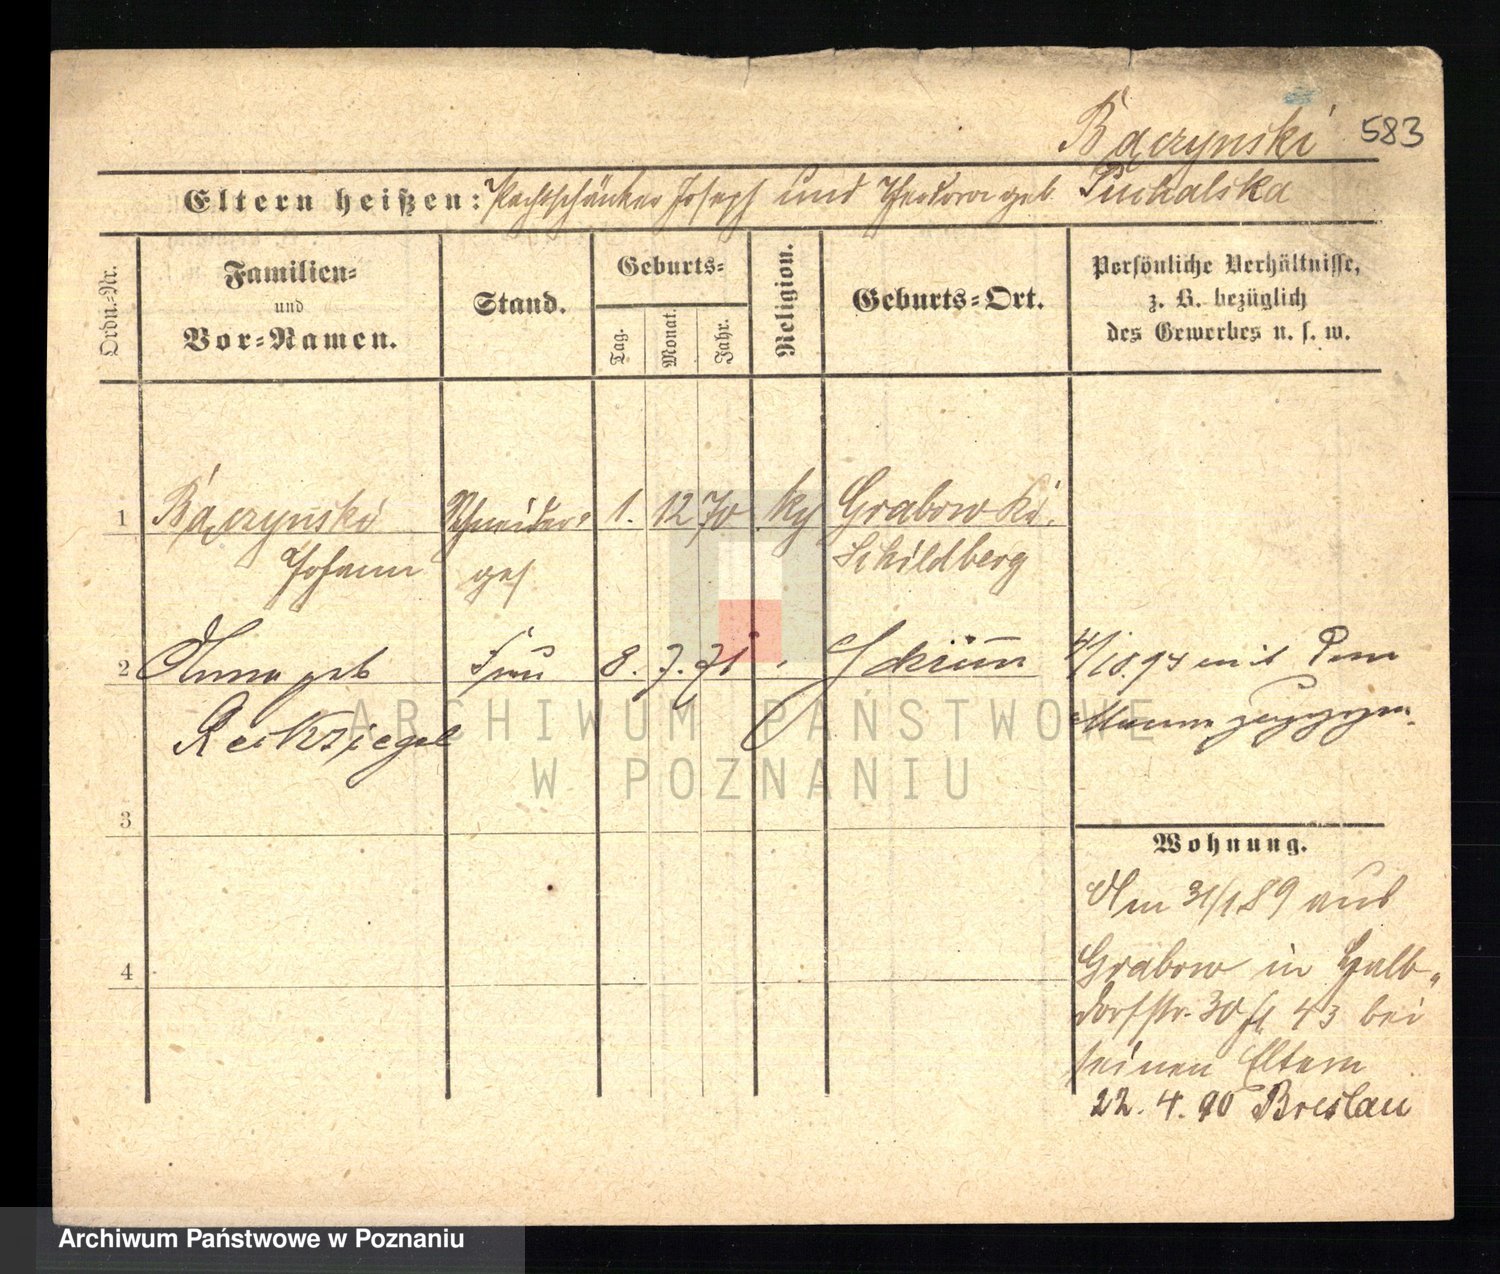 Bączyński 583
Eltern heißen: Pachtschänker Joseph und Theodora geb. Puchalska
Ordn.-Nr.
Familien-
und
Vor-Namen.
Stand.
Geburts-
Tag.
Monat.
Jahr.
Religion.
Geburts-Ort.
Persönliche Verhältnisse,
z. B. bezüglich
des Gewerbes u. s. w.
1 Bączyński Schneider- 1. 12 70 Grabow Kr.
Johann ges Schildberg
2 Anna geb Frau 8. 7. 71 4/10.94 mit dem
Manne gezogen.
3
4
Wohnung.
Am 31/1 89 aus
Grabow in Halb-
dorfstr. 30 43 bei
seinen Eltern
22. 4. 90 Breslau
ARCHIWUM PAŃSTWOWE
W POZNANIU
Archiwum Państwowe w Poznaniu